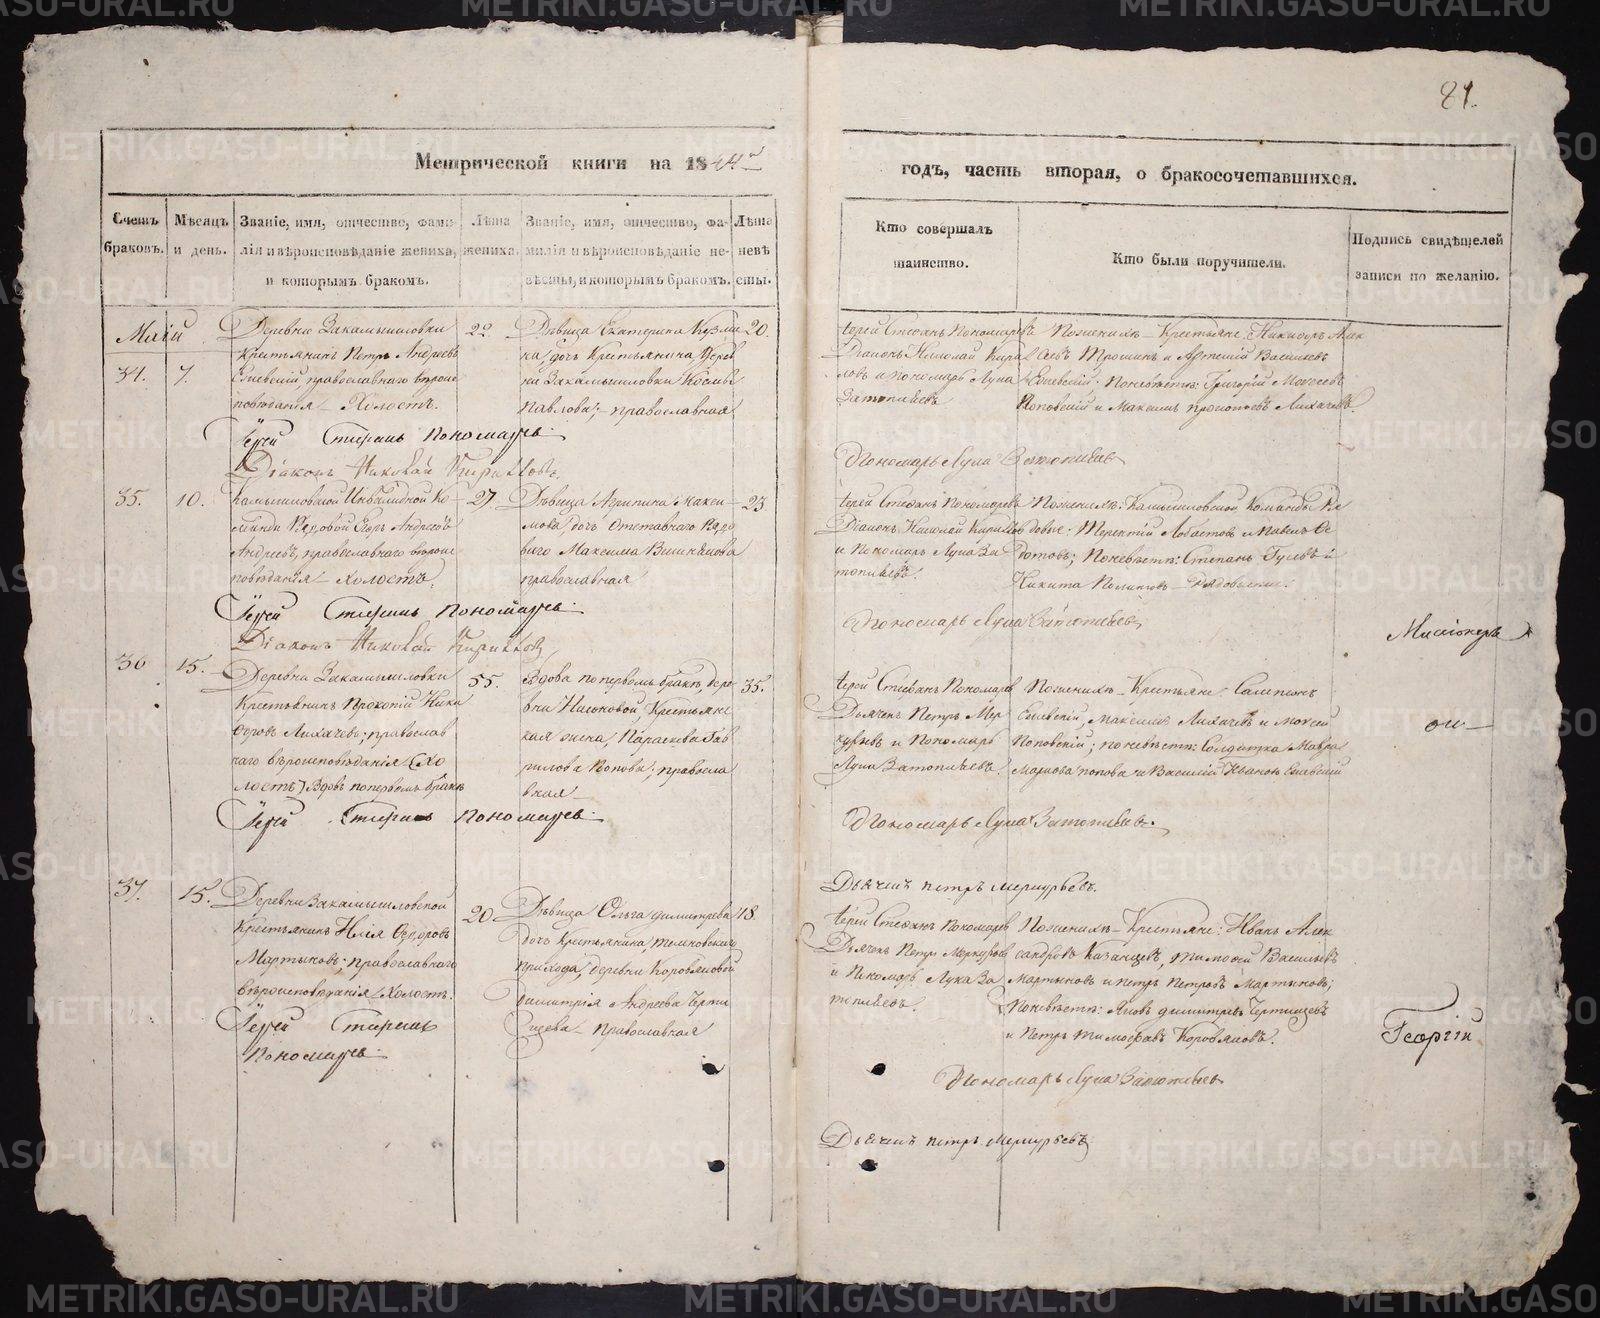 81.
Метрической книги на 1844й
годъ, часть вторая, о бракосочетавшихся.
Счетъ браковъ.
Мѣсяцъ и день.
Званіе, имя, отчество, фами-
лія и вѣроисповѣданіе жениха,
и которымъ бракомъ.
Лѣта
жениха.
Званіе, имя, отчество, фа-
милія и вѣроисповѣданіе не-
вѣсты, и которымъ бракомъ.
Лѣта
невѣ
сты.
Кто совершалъ
таинство.
Кто были поручители.
Подпись свидѣтелей
записи по желанію.
Маій
34. 7.
Деревни Закамышловки
Крестьянинъ Петръ Андреевъ
Еневскій, православнаго вѣроис
повѣданія – Холостъ.
22
Дѣвица Екатерина Кузми
на, дочь Крестьянина, Дерев
ни Закамышловки Козмы
Павлова; – православная
20.
Іерей Стефанъ Пономаревъ
Діаконъ Николай Кирил
ловъ и пономарь Лука
Затопляевъ
По женихѣ – Крестьяне: Никифоръ Алек
сѣевъ Трошинъ и Артемій Васильевъ
Еневскій; По невѣстѣ: Григорій Моѵсеевъ
Поповскій и Максимъ Прокопьевъ Лихачевъ.
Іерей Стефанъ Пономаревъ.
Діаконъ Николай Кирилловъ.
Пономарь Лука Затопляевъ
35. 10.
Камышловской Инвалидной Ко-
манды Рядовой Егоръ Андреевъ
Андреевъ, православнаго вѣроис
повѣданія – холостъ.
27.
Дѣвица Агрипина Макси-
мова, дочь Отставнаго Рядо
ваго Максима Вишнякова
православная
23
Іерей Стефанъ Пономаревъ
Діаконъ Николай Кирилловъ
и Пономарь Лука За
топляевъ.
По женихѣ: Камышловской Команды Ря
довые: Терентій Лобастовъ и Павелъ Ѳе
дотовъ; По невѣстѣ: Степанъ Гулевъ и
Никита Поликовъ – рядовые.
Іерей Стефанъ Пономаревъ.
Діаконъ Николай Кирилловъ
Пономарь Лука Затопляевъ
Миссіонеръ
36 15.
Деревни Закамышловки
Крестьянинъ Прокопій Ники
форовъ Лихачевъ; православ
наго вѣроисповѣданія (Хо
лостъ) Вдовъ по первомъ бракѣ
55.
Вдова по первомъ бракѣ, дере-
вни Никоновой, Крестьянс
кая жена, Параскева Гав
рилова Попова; правосла
вная
35.
Іерей Стефанъ Пономаревъ
Дьячекъ Петръ Мер
курьевъ и Пономарь
Лука Затопляевъ.
По женихѣ – Крестьяне: Сампсонъ
Еневскій, Максимъ Лихачевъ и Моѵсей
Поповскій; по невѣстѣ: Солдатка Мавра
Маркова Попова и Василій Ивановъ Еневскій
Іерей Стефанъ Пономаревъ.
Пономарь Лука Затопляевъ.
Дьячекъ Петръ Меркурьевъ.
37. 15.
Деревни Закамышловской
Крестьянинъ Илія Ѳедоровъ
Мартыновъ; православнаго
вѣроисповѣданія, Холостъ.
20
Дѣвица Ольга Димитріева
дочь Крестьянина,
прихода, деревни Коровяковой
Димитрія Андреева Черти
щева – православная
18.
Іерей Стефанъ Пономаревъ
Дьячекъ Петръ Меркурьевъ
и Пономарь Лука За
топляевъ.
По женихѣ – Крестьяне: Иванъ Алек
сандровъ Казанцевъ, Тимофей Васильевъ
Мартыновъ и Петръ Петровъ Мартыновъ;
По невѣстѣ: Яковъ Димитріевъ Чертищевъ
и Петръ Тимофѣевъ Коровяковъ.
Іерей Стефанъ
Пономаревъ.
Георгій
Пономарь Лука Затопляевъ
Дьячекъ Петръ Меркурьевъ